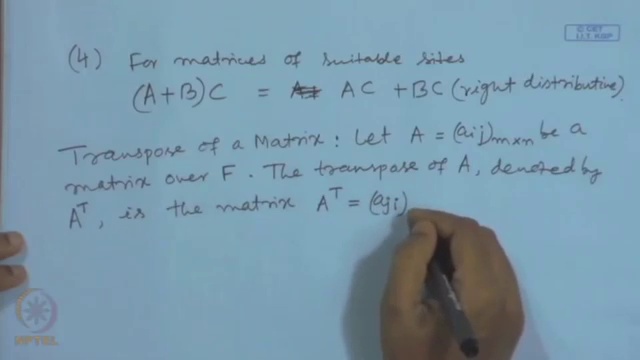 © CET
I.I.T. KGP
(4) For matrices of suitable sites
(A+B)C = AC + BC (right distributive).
Transpose of a Matrix : Let A = (aij)m×n be a
matrix over F. The transpose of A, denoted by
A^T, is the matrix A^T = (aji)
NPTEL